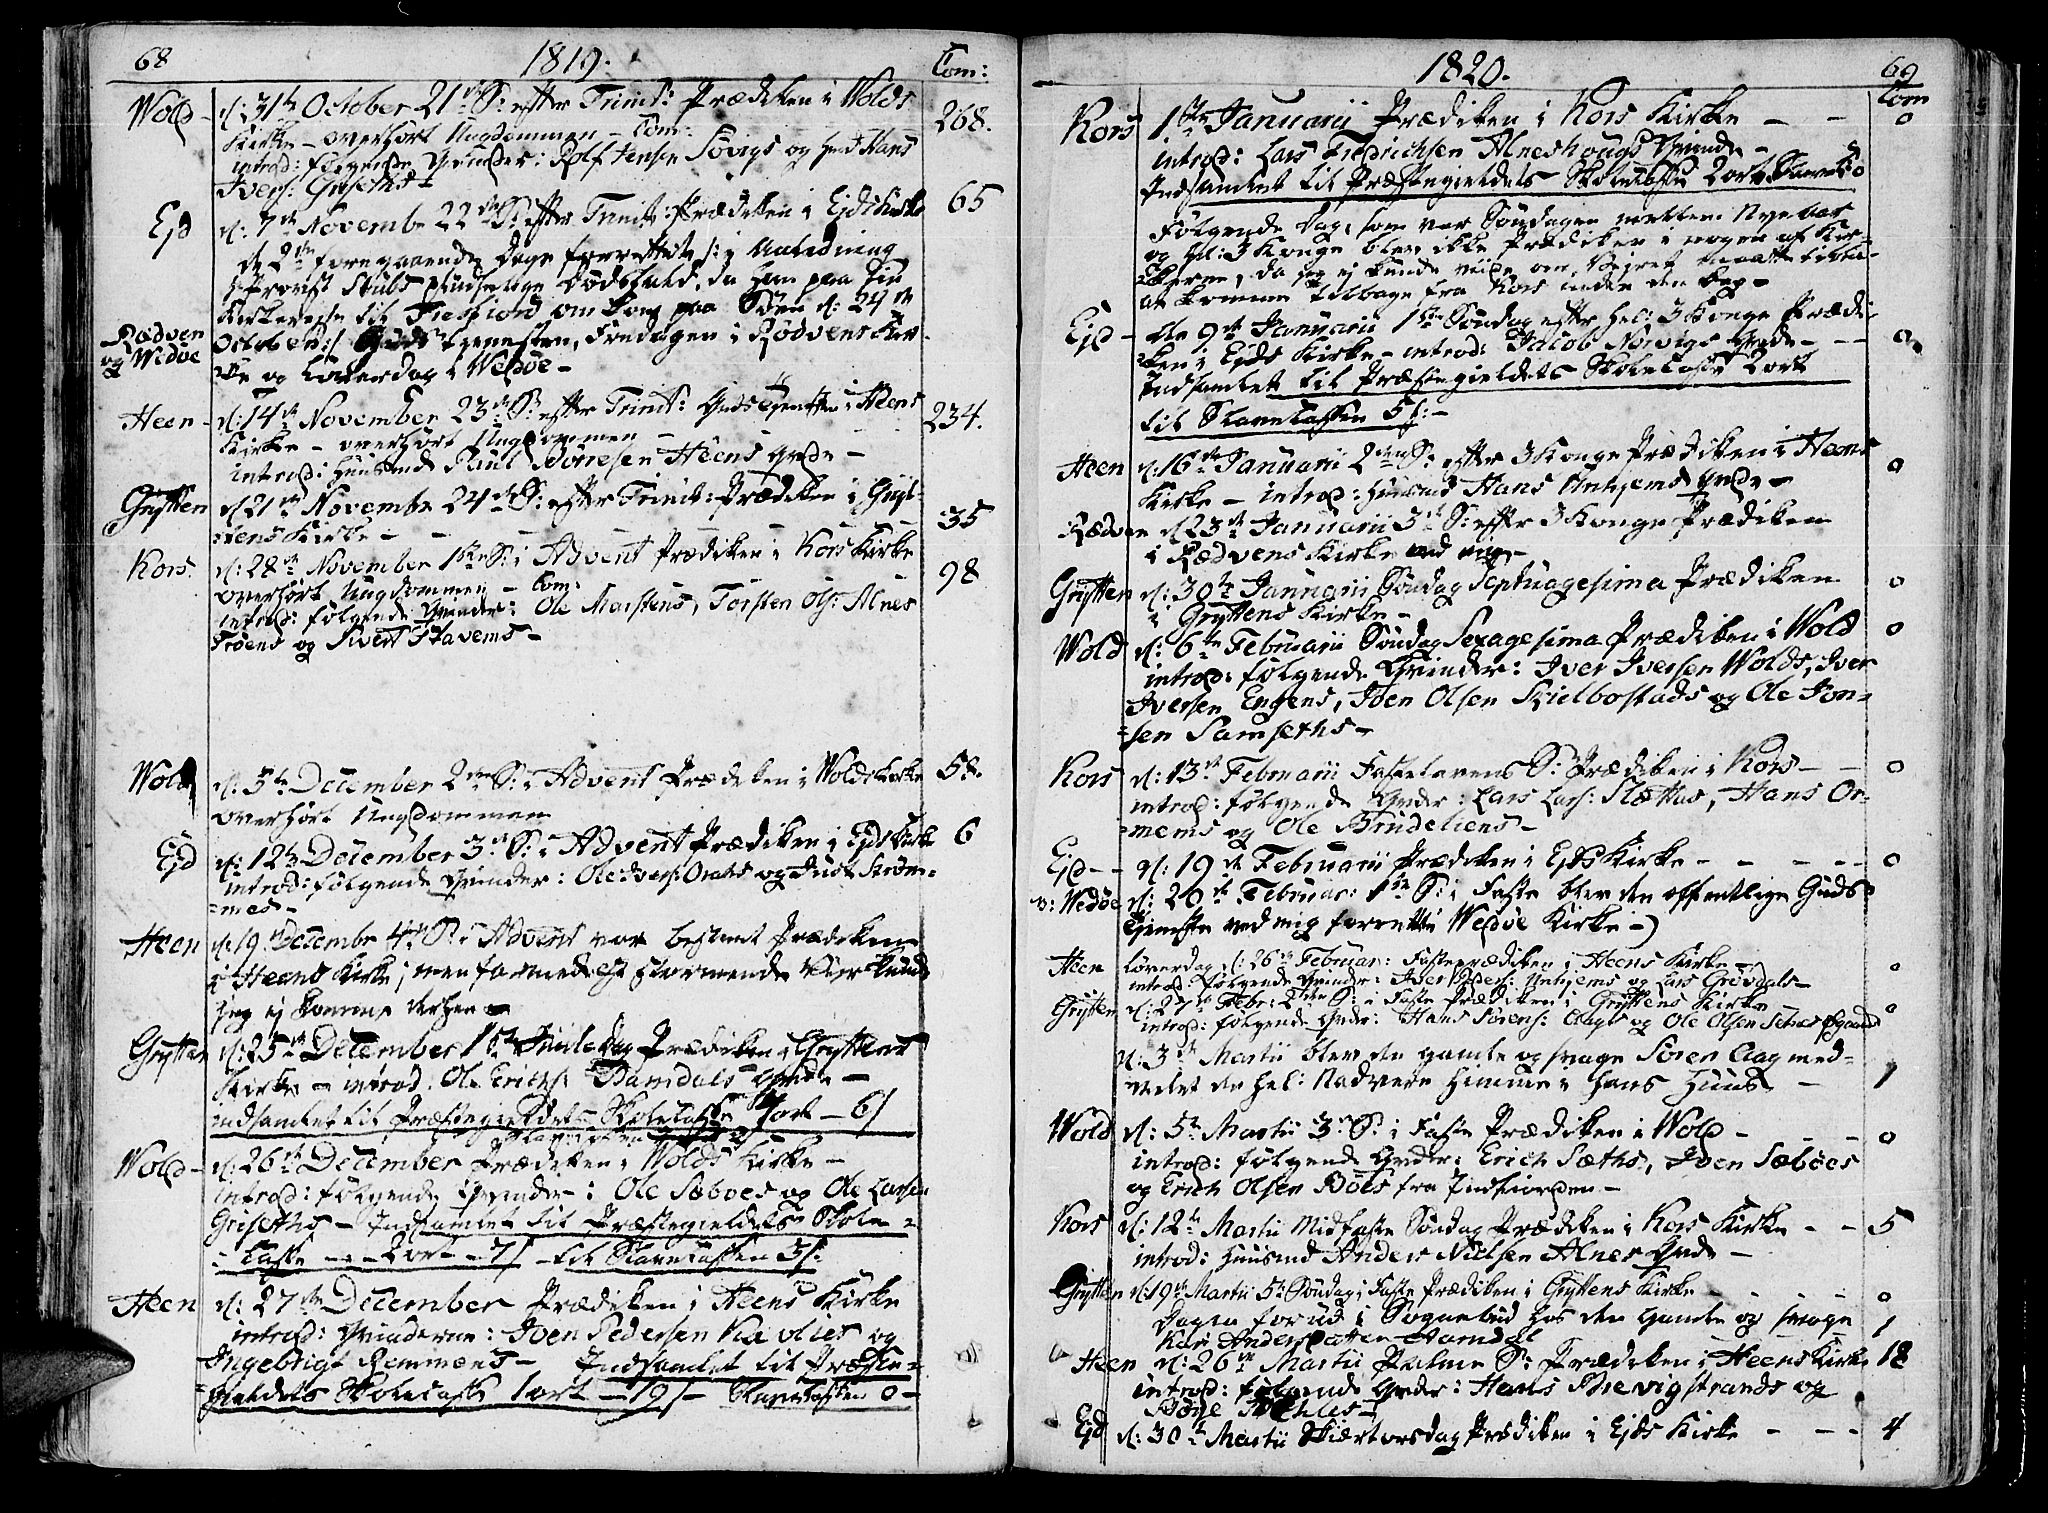 68
1819.
Com:
Wold - d: 31te October 21de S: efter Trinit: Prædiken i Wolds 268.
Kirke - overhørt Ungdommen - Com:
introd: følgende Qvinder: Rolf Jensen Søvigs og Hans
Ivers: Griseths -
Ejd d: 7de November 22de S: efter Trinit: Prædiken i Ejds Kirke 65
de 2de foregaaende Dage forrettet /: i Anledning
H Provst Stubs pludselige Dødsfald, da han paa sin
Kirkereise til omkom paa Søen d: 24de
Rædven October :/ Gudstienesten, Fredagen i Rødvens Kir-
og Wedøe ke og Løverdag i Wedøe -
Heen - d: 14de November 23de S: efter Trinit: Gudstienesten i Heens 234.
Kirke - overhørt Ungdommen -
introd: Huusmd Poul Børresen Heens Qvde -
Grytten d: 21de November 24de S: efter Trinit: Prædiken i Gryt- 35
tens Kirke -
Kors. d: 28de November 1ste S: i Advent Prædiken i Kors Kirke 98
overhørt Ungdommen - Com:
introd: følgende Qvinder: Ole Marstens, Torsten Ols: Alnes
Troens og Sivert Stavems -
Wold d: 5te December 2den S: i Advent Prædiken i Wolds Kirke 58.
overhørt Ungdommen
Ejd d: 12te December 3de S: i Advent Prædiken i Ejds Kirke 6
introd: følgende Qvinder: Ole Ivers: og Just Strøm-
mes -
Heen d: 19 Decembr 4de S: i Advent var bestemt Prædiken
i Heens Kirke; men formedelst stormende Veir kunde
jeg ej komme derhen -
Grytten d: 25de December 1ste Juule Dag Prædiken i Gryttens
Kirke - introd: Ole Erichs: Ramdals Qvde -
indsamlet til Præstegieldets Skolecasse ort - 6 s
Wold - d: 26de December Prædiken i Wolds Kirke -
introd: følgende Qvinder: Ole Sæbøes og Ole Larsen
Griseths - Indsamlet til Præstegieldets Skole-
Casse - - 2 ort - 7 s - til Slavecassen 3 s:
Heen d: 27de December Prædiken i Heens Kirke
introd: Qvinderne: Iven Pedersen og
Ingebrigt Remmens - Indsamlet til Præste-
gieldets Skolecasse 1 ort - 19 s - Slavecassen 0 -
1820.
69
Com
Kors 1ste Januarii Prædiken i Kors Kirke - - 0
introd: Lars Fredrichsen Alneshougs Qvinde -
Indsamlet til Præstegieldets Skolecasse 2 ort
Følgende Dag, som var Søndagen mellem Nye Aar
og hel: 3 Konge blev ikke Prædiken i nogen af Kir-
kerne, da jeg ej kunde viide om Vejret
at komme tilbage fra Kors inden den Dag -
Ejd - de 9de Januarii 1ste Søndag efter Hel: 3 Konge Prædi- 0
ken i Ejds Kirke - introd: Jacob Norvigs Qvde -
Indsamlet til Præstegieldets Skolecasse 2 ort
til Slavecassen 5 s: -
Heen d: 16de Januarii 2den S: efter 3 Konge Prædiken i Heens 0
Kirke - introd: Huusmd Hans Unhjems Qvde -
Rædven d: 23de Januarii 3de S: efter 3 Konge Prædiken
i Rædvens Kirke ved mig -
Grytten d: 30te Januarii Søndag Septuagesima Prædiken 0
i Gryttens Kirke -
Wold d: 6te Februarii Søndag Sexagesima Prædiken i Wold 0
introd: følgende Qvinder: Iver Iversen Wolds, Iver
Iversen Engens, Iven Olsen Skielbostads og Ole Jon-
sen Samseths -
Kors d: 13de Februarii Fastelavens S: Prædiken i Kors - - 0
introd: følgende Qvder: Lars Lars: Slættas, Hans Or-
mems og Ole Brudeliens -
Ejd - - d: 19de Februarii Prædiken i Ejds Kirke - - - - 0
v: Wedøe d: 20de Februar: 1ste S: i Faste blev den offentlige Guds-
tieneste ved mig forrettet i Wedøe Kirke -)
Heen Løverdag d: 26de Februar: Fasteprædiken i Heens Kirke - 0
introd: følgende Qvinder: Iver Peders: Unhjems og Lars Grøvdals -
Grytten d: 27de Febr: 2den S: i Faste Prædiken i Gryttens Kirke - 0
introd: følgende Qvder: Hans Sørens: Aags og Ole Olsen
d: 3de Martii blev den gamle og svage Søren Aag med-
delet den hel: Nadvere hiemme i hans Huus - 1
Wold d: 5te Martii 3de S: i Faste Prædiken i Wold - - - 0
introd: følgende Qvder: Erich Sæths, Iven Sæbøes
og Erich Olsen Bøes fra Indfiorden -
Kors d: 12te Martii Midfaste Søndag Prædiken i Kors Kirke - - 5
introd: Huusmd Anders Nielsen Alnes Qvde -
Grytten d: 19de Martii 5te Søndag i Faste Prædiken i Gryttens Kirke - 0
Dagen forud i Sognebud hos den gamle og svage 1
Kari Andersdatter Ramdal
Heen d: 26de Martii Palme S: Prædiken i Heens Kirke 18
introd: følgende Qvder: Hans Brevigstrands og
Børge
Ejd d: 30te Martii Skiertorsdag Prædiken i Ejds Kirke - - - 4